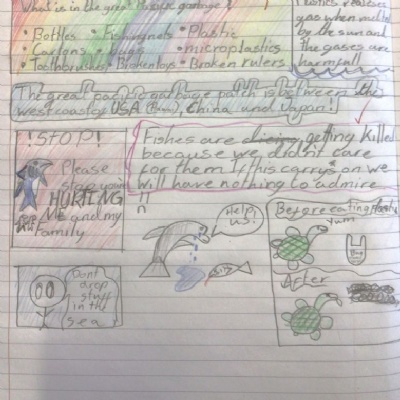 What is in the great Pacific garbage
• Bottles • Fishingnets • Plastic
• Cartons • bags microplastics
• Toothbrushes • Broken toys • Broken rulers
Plastics releases
gas when melted
by the sun and
the gases are
harmfull
The great pacific garbage patch is between the
west coast of USA China and Japan!
!STOP!
Please
stop your
HURTING
Me and my
Family
Fishes are getting killed
because we didn't care
for them If this carrys on we
will have nothing to admire
!!
Help
us!
Before eating Plastic
Yum
Bag
After
Dont
drop
stuff
in the
sea